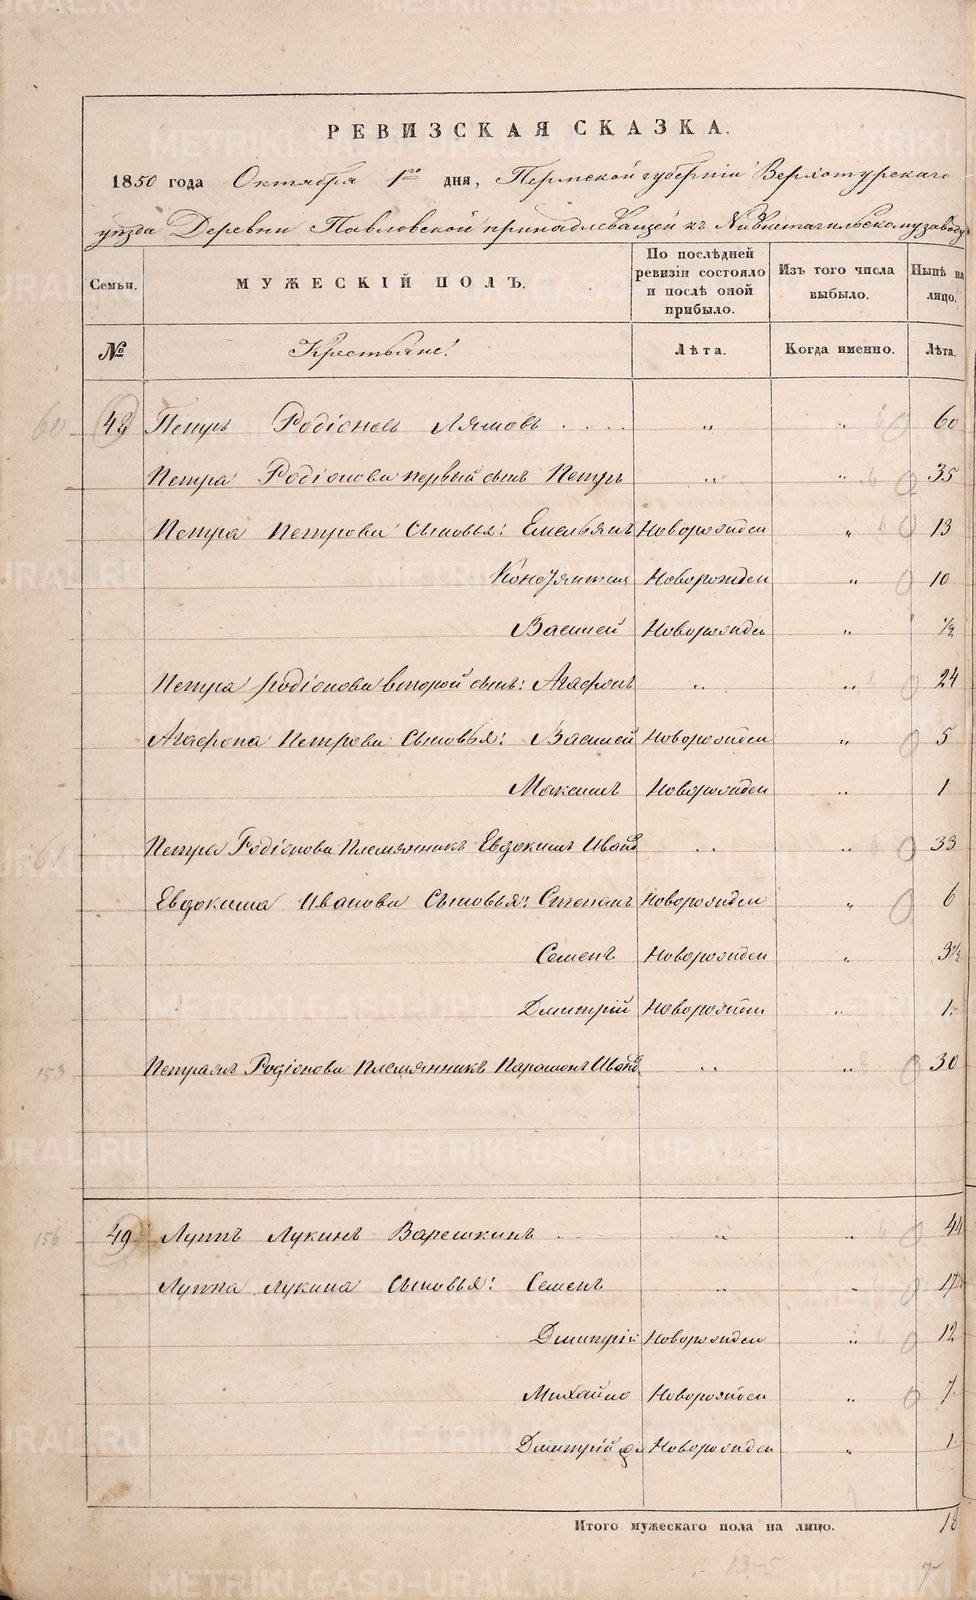 РЕВИЗСКАЯ СКАЗКА.
1850 года Октября 1го дня, Пермской губернiи Верхотурскаго
уѣзда Деревни Павловской принадлежащей къ Нижнетагильскому заводу
Семьи.
МУЖЕСКІЙ ПОЛЪ.
По послѣдней ревизіи состояло и послѣ оной прибыло.
Изъ того числа выбыло.
Нынѣ на лицо.
№ Крестьяне: Лѣта. Когда именно. Лѣта.
48 Петръ Родіоновъ Лямовъ . . . . " " 60
Петра Родіонова первый сынъ Петръ " " 35
Петра Петрова Сыновья: Емельянъ Новорожден " 13
Констянтинъ Новорожден " 10
Василей Новорожден " ½
Петра Родіонова второй сынъ: Агафонъ " " 24
Агафона Петрова Сыновья: Василей Новорожден " 5
Максимъ Новорожден " 1
Петра Родіонова Племянникъ Евдокимъ Иванов " " 33
Евдокима Иванова Сыновья: Степанъ Новорожден " 6
Семенъ Новорожден " 3½
Дмитрій Новорожден " 1
Петра Родіонова Племянникъ Парамонъ Иванов " " 30
153
49 Луппъ Лукинъ Варешкинъ " " 44
156
Луппа Лукина Сыновья: Семенъ " " 17½
Дмитрій Новорожден " 12
Михайло Новорожден " 7
Дмитрій 2й Новорожден " 1
Итого мужескаго пола на лицо. 18
13-5
METRIKI.GASO-URAL.RU